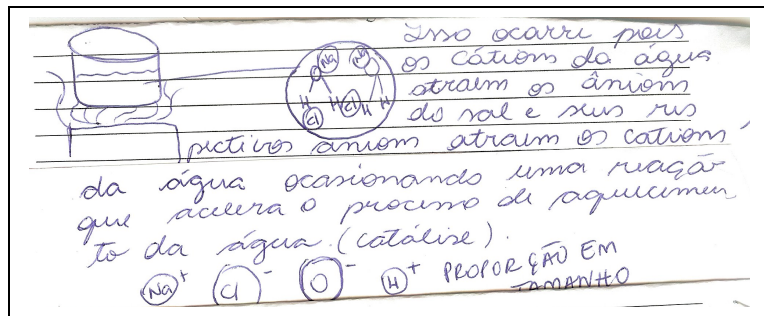 Isso ocorre pois
os cátions da água
atraem os ânions
do sal e seus res
pectivos anions atraem os cations
da água ocasionando uma reação
que acelera o processo de aquecimen
to da água. (catálise).
Na Na
O O
H H H H
Cl Cl
Na+ Cl- O- H+ PROPORÇÃO EM
TAMANHO